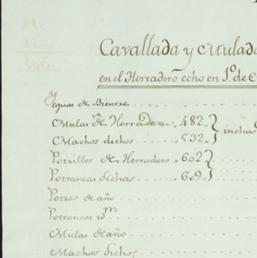 Cavallada y Mulada
en el Herradero echo en 1.º de E
Yeguas de Bientre
Mulas de Herradero .. 482.
Machos dichos .. 532.
inclus
Potrillos de Herradero .. 602
Potrancas dichas .. 609.
Potros de año
Potrancas id.m
Mulas de año
Machos dichos